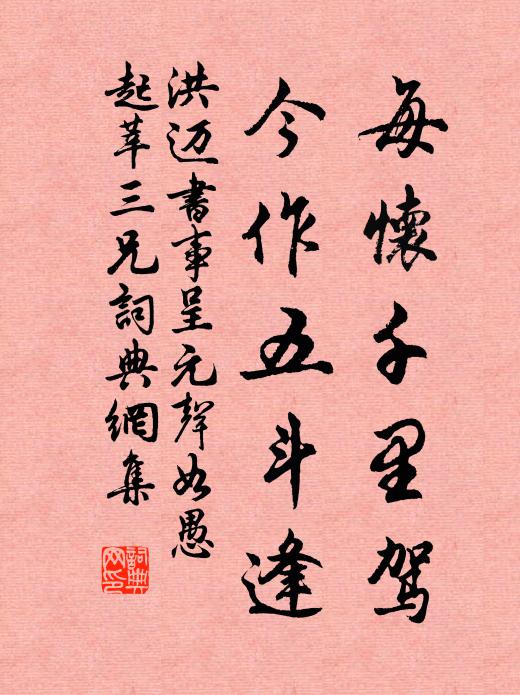 每懷千里駕
今作五斗逢
洪迈書事呈元聲如愚
起莘三兄詞典網集
詞典
网印